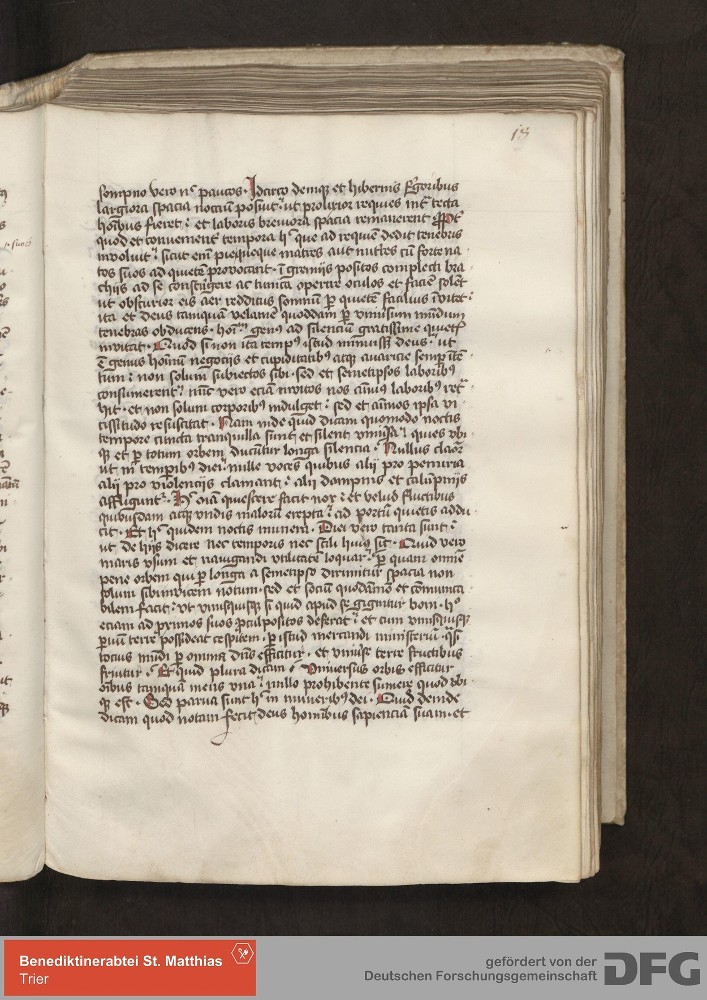 18
sompno vero nͨ paucos · Idarco demꝗ et hibernis frigoribus
largiora spacia noctium posuit · ut prolixior requies intͣ tecta
hoībus fieret : et laboris breuiora spacia remanerent
quod et conuenient tempora hͨ que ad requiē dedit tenebris
inuoluit : sicut enī pieqꝫ matres aut nutͥces cū forte na
tos suos ad quietē prouocant · ī gremijs positos complecti bra
chijs ad se constrīgere ac tunica operire oculos et faciē solēt
ut obscurior eis aer redditus somnū ꝑ quietē facilius īuitet :
ita et deus tanquā velamē quoddam ꝑ vniuersum mūdum
tenebras obducens · genꝰ ad silenciū gratissime quietꝭ
inuitat · Quod si non ita tempꝰ istud īmississꝫ deus : ut
ē genus hoīnū negocijs et cupiditatibꝰ atqꝫ auaricie semꝑ ītē
tum : non solum subiectos sibi · sed et semetipsos laboribꝰ
consumerent : nūc vero eciam inuitos nos
hit · et non solum corporibꝰ indulget : sed et aīmos ipsa vi
cissitudo resuscitat · Nam inde quid dicam quomodo noctis
tempore cuncta tranquilla sunt et silent vniūsa : quies vbi
qꝫ et ꝑ totum orbem ducūtur longa silencia · Nullus claor
ut in temꝑibꝰ diei : mille voces quibus alij pro penuria
alij pro violencijs clamant : alij dampnis et calūpnijs
affligunt · Hͨ oīa quiescere facit nox : et velud fluctibus
quibusdam atqꝫ vndis malorū erepta : ad portū quietis addu
cit · Et hͨ quidem noctis munera · Diei vero tanta sunt :
ut de hijs dicere nec temporis nec stili huiꝰ sit · Quid vero
maris vsum et nauigandi vtilitatē loquar : ꝑ quam omnē
pene orbem qui ꝑ longa a semetipso dirimitur spacia non
solum sibiinuicem notum · sed et sociū quodāmō et comunica
bilem facit : ut vnusquisqꝫ si quid apud se gignitur boni · hͦ
eciam ad proximos suos ꝓcul positos deferat : et cum vnusquisqꝫ
ꝑuū terre possideat cespitem · ꝑ istud mercandi ministeriū ·
tocius mūdi ꝑ omnia dn̄s efficitur · et vniuerse terre fructibus
fruitur · Et quid plura dicam · Vniuersus orbis efficitur
oībus tamquā mensa vna : nullo prohibente sumere quod vbi
qꝫ est · Sed parua sunt hͨ in muneribꝰ dei · Quid deinde
dicam quod notam fecit deus hominibus sapienciā suam · et
Benediktinerabtei St. Matthias
Trier
gefördert von der
Deutschen Forschungsgemeinschaft
DFG